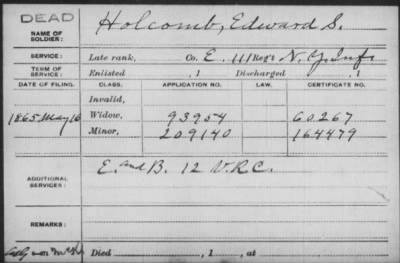 DEAD
NAME OF SOLDIER: Holcomb, Edward S.
SERVICE: Late rank, Co. E, 111 Reg't N.Y. Inf.
TERM OF SERVICE: Enlisted , 1 Discharged , 1
DATE OF FILING. CLASS. APPLICATION NO. LAW. CERTIFICATE NO.
Invalid,
1865 May 16 Widow, 93954 60267
Minor, 209140 164479
ADDITIONAL SERVICES: E. and B. 12 V.R.C.
REMARKS:
Died , 1 , at